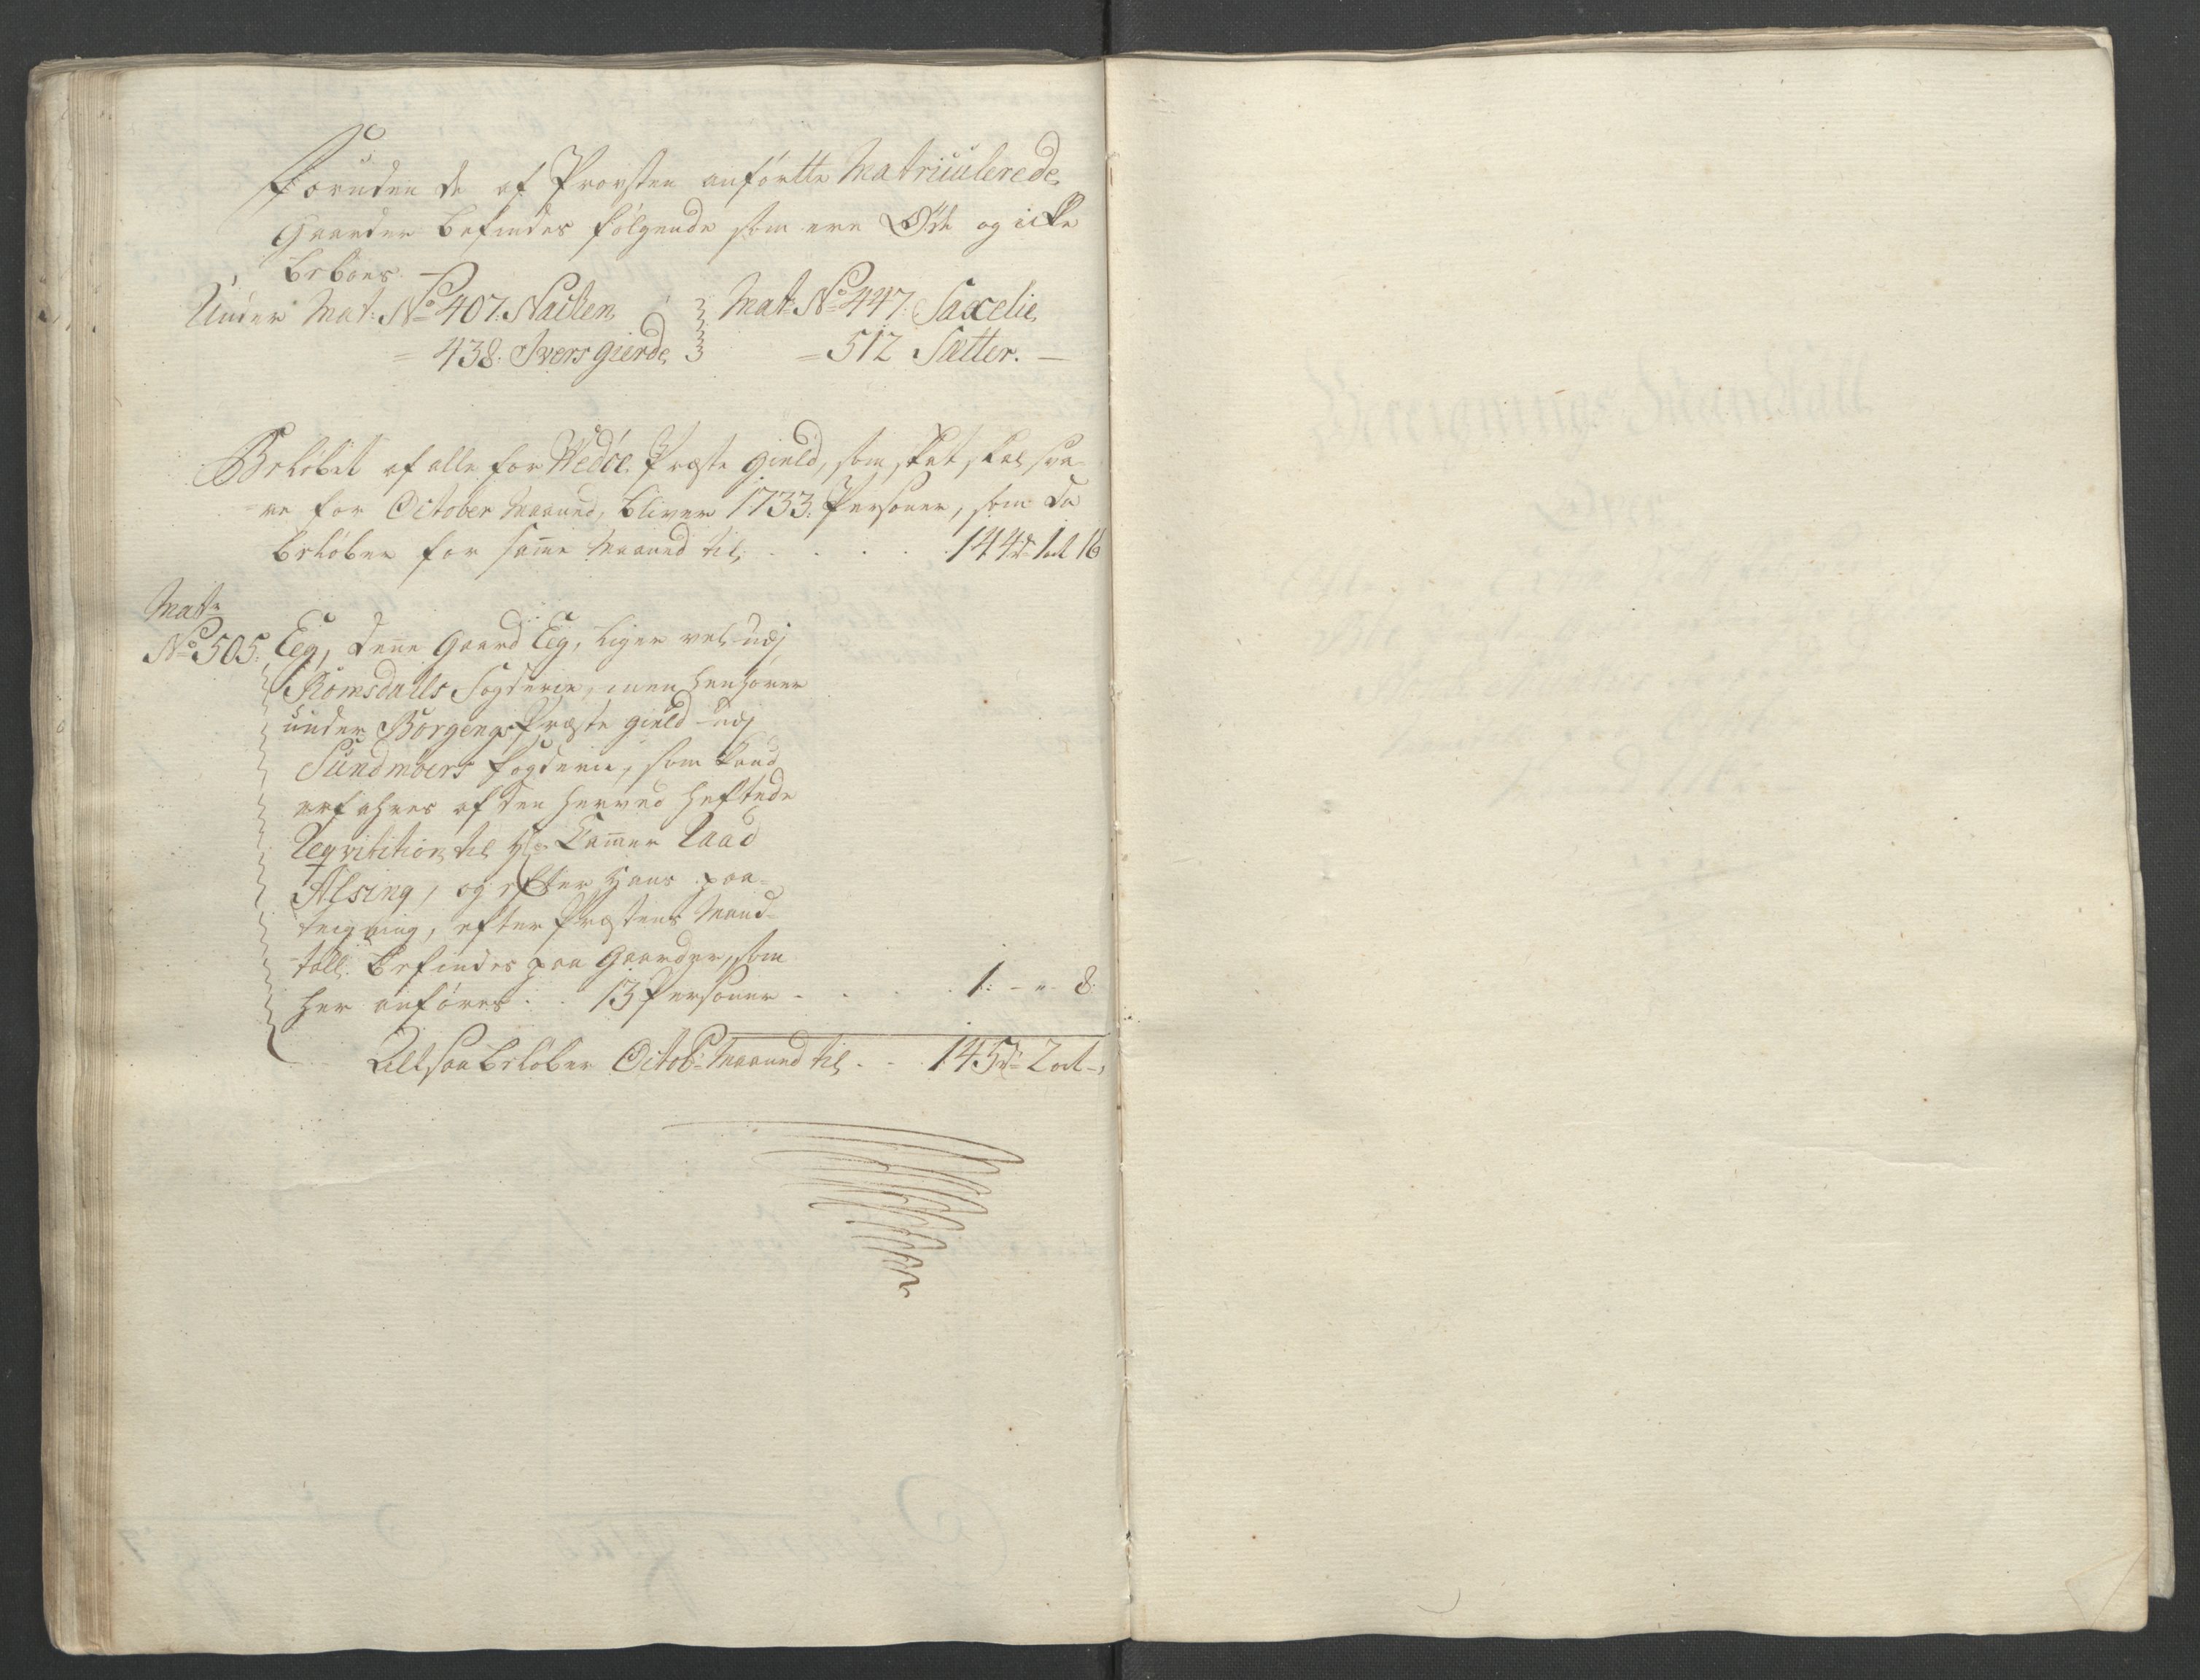 Foruden de af Provsten anførtte Matriculerede
Gaarder befindes følgende som ere Øde og icke
beboes. —
Under Mat: No 407. Nacken, Mat: No 447. Saxelie,
= 438. Iversgierde, = 512 Sætter. —
Beløbet af alle for Wedøe Præste gield, som skat skal sva-
re for October Maaned, bliver 1733. Personer, som da
beløber for samme Maaned til, . . . . 144 rd 1 ort 16
Matr
No 505. Eeg, denne Gaard Eeg, liger vel udj
Romsdalls Fogderie, men henhører
under Borgengs Præste gield udj
Sundmøers fogderie, som kand
erfahres af den herved heftede
Reqvisition til Hr Cammer Raad
Alsing, og efter hans paa-
teigning, efter Præstens Mand-
tall befindes paa Gaarder, som
her anføres . . 13 Personer - . . . 1: - " - 8.
Altsaa beløber Octob: Maaned til . . 145 rd 2 ort -,